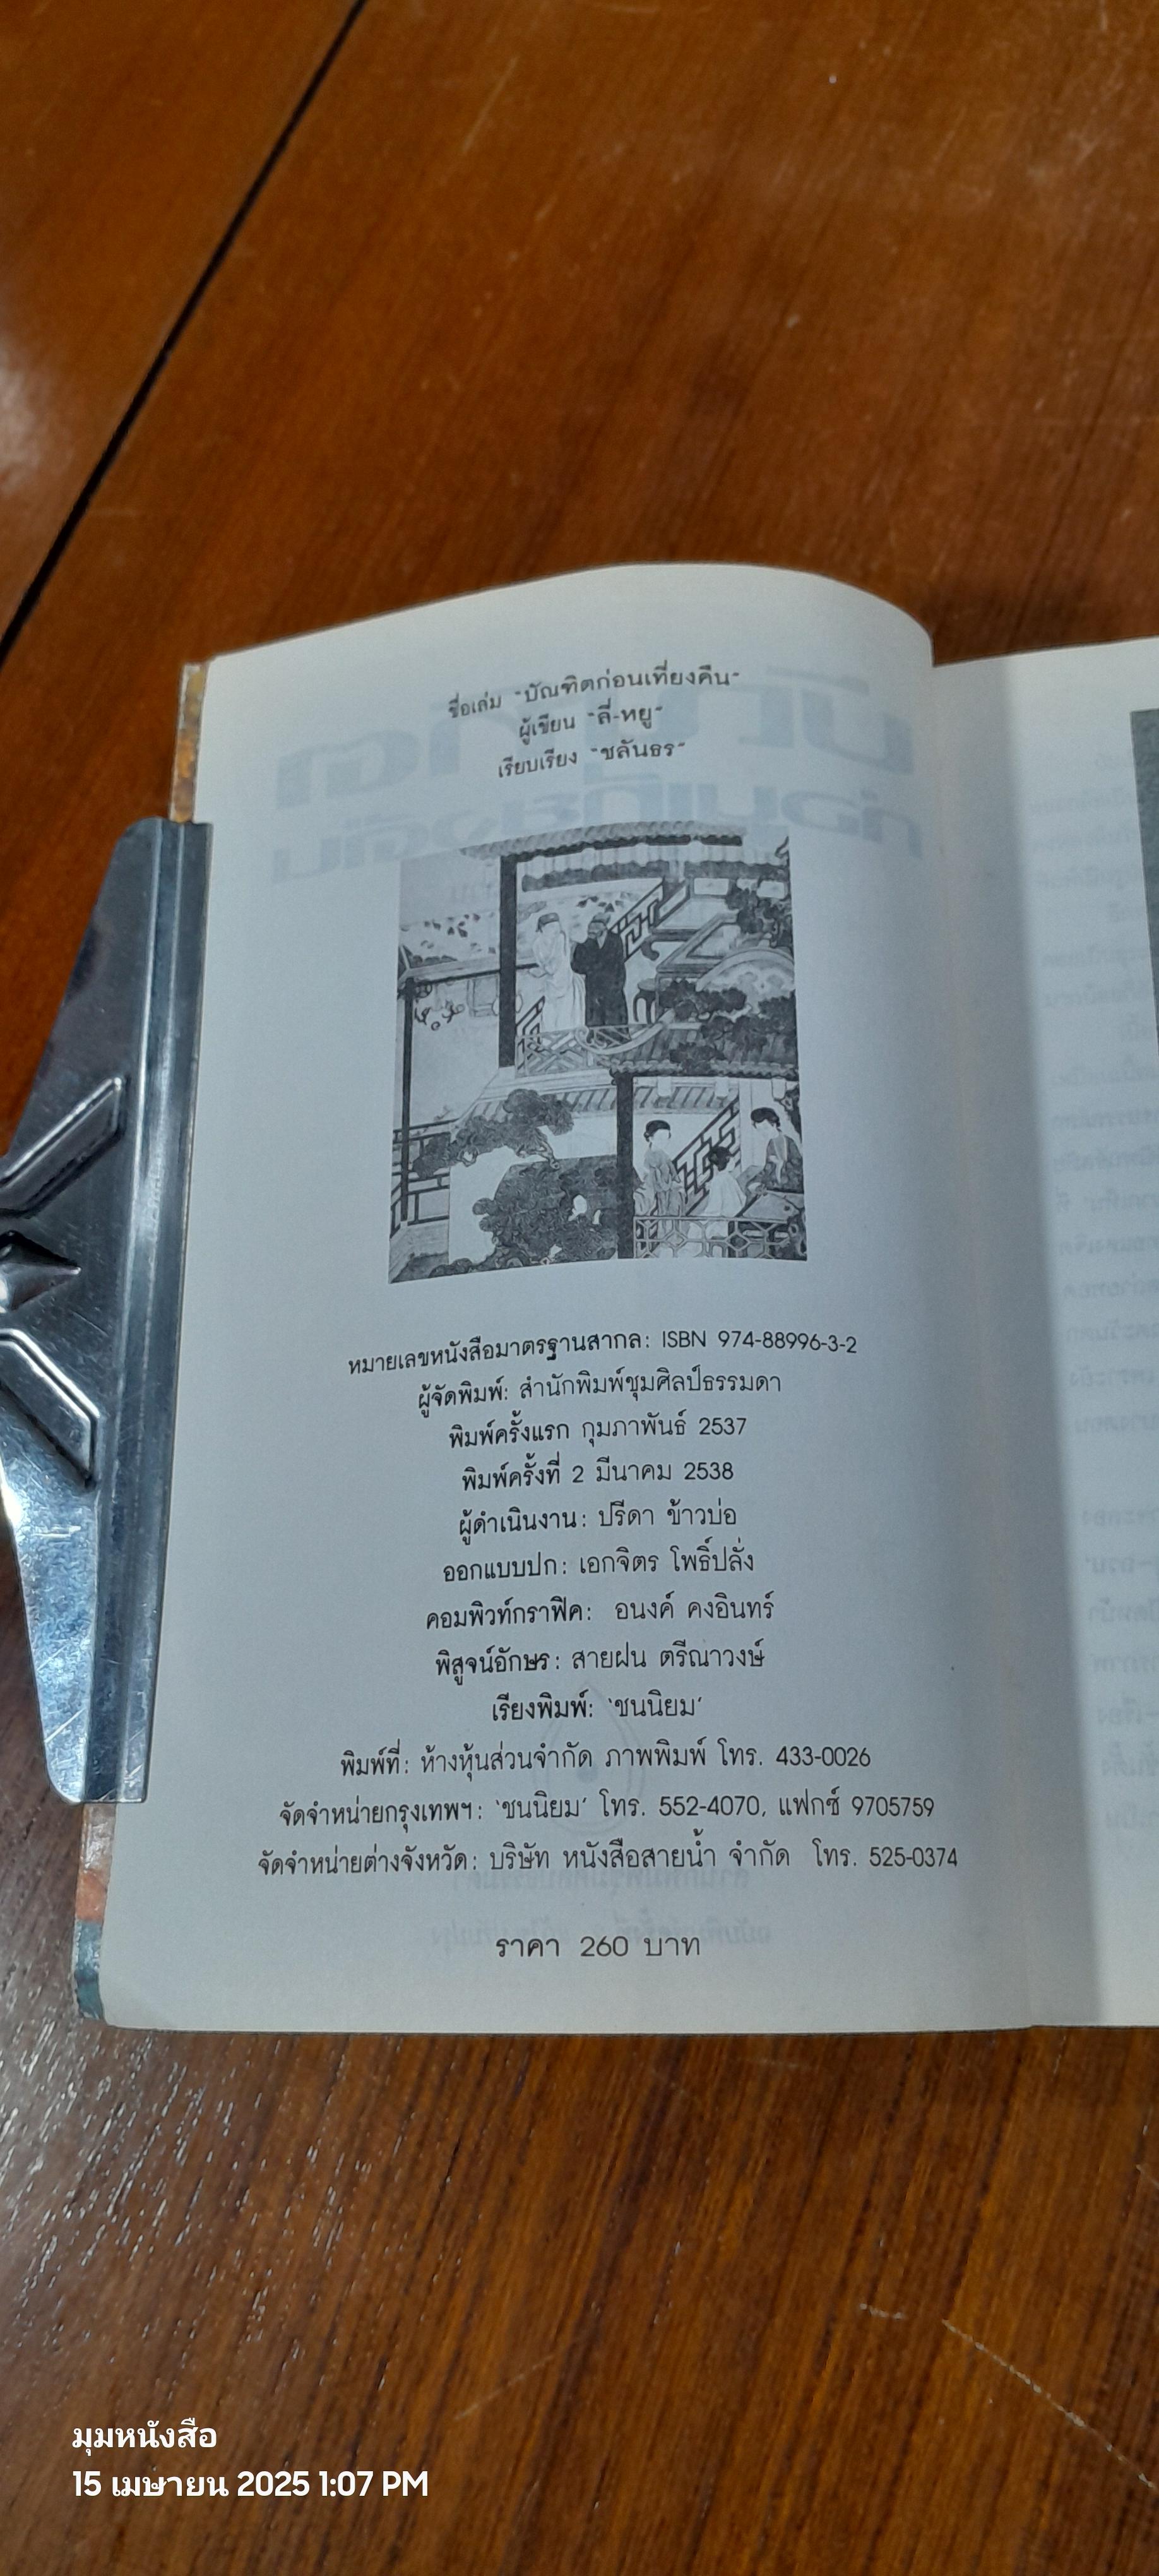 ชื่อเล่ม "บัณฑิตก่อนเที่ยงคืน"
ผู้เขียน "ลี่-หยู"
เรียบเรียง "ชลันธร"
หมายเลขหนังสือมาตรฐานสากล: ISBN 974-88996-3-2
ผู้จัดพิมพ์: สำนักพิมพ์ชุมศิลป์ธรรมดา
พิมพ์ครั้งแรก กุมภาพันธ์ 2537
พิมพ์ครั้งที่ 2 มีนาคม 2538
ผู้ดำเนินงาน: ปรีดา ข้าวบ่อ
ออกแบบปก: เอกจิตร โพธิ์ปลั่ง
คอมพิวท์กราฟิค: อนงค์ คงอินทร์
พิสูจน์อักษร: สายฝน ตรีณาวงษ์
เรียงพิมพ์: 'ชนนิยม'
พิมพ์ที่: ห้างหุ้นส่วนจำกัด ภาพพิมพ์ โทร. 433-0026
จัดจำหน่ายกรุงเทพฯ: 'ชนนิยม' โทร. 552-4070, แฟกซ์ 9705759
จัดจำหน่ายต่างจังหวัด: บริษัท หนังสือสายน้ำ จำกัด โทร. 525-0374
ราคา 260 บาท
มุมหนังสือ
15 เมษายน 2025 1:07 PM